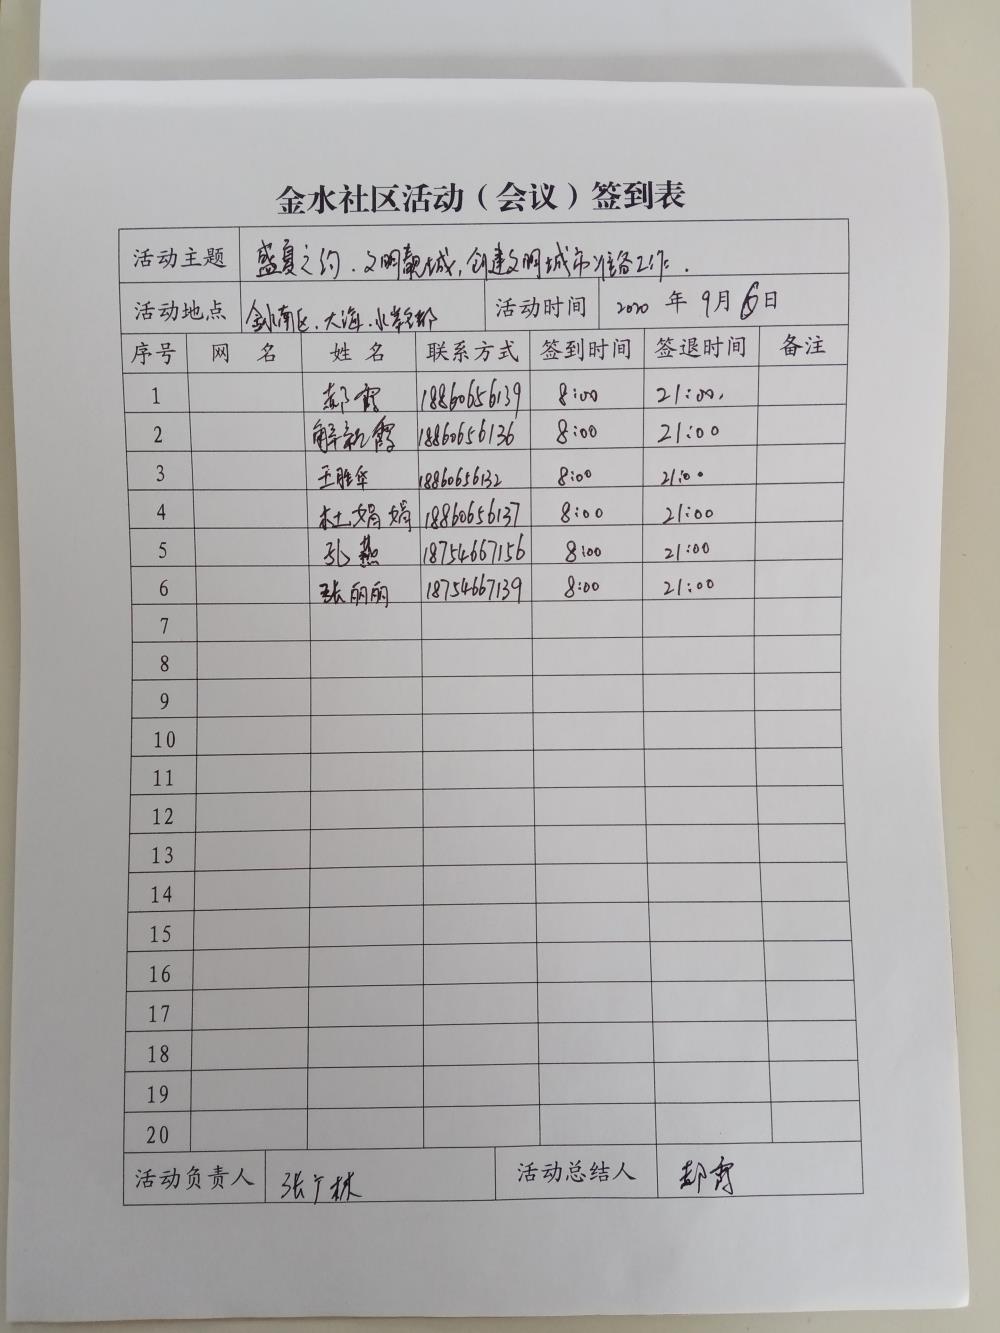 金水社区活动（会议）签到表
活动主题 盛夏之约．文明靓城，创建文明城市准备工作．
活动地点 金水南区、大海、水 都 活动时间 2020 年 9月 6日
序号 网 名 姓 名 联系方式 签到时间 签退时间 备注
1 郝霞 18860656139 8:00 21:00.
2 解新霞 18860656136 8:00 21:00
3 王胜华 18860656132 8:00 21:00
4 杜娟娟 18860656137 8:00 21:00
5 孔燕 18754667156 8:00 21:00
6 张丽丽 18754667139 8:00 21:00
7
8
9
10
11
12
13
14
15
16
17
18
19
20
活动负责人 张广林 活动总结人 郝霞